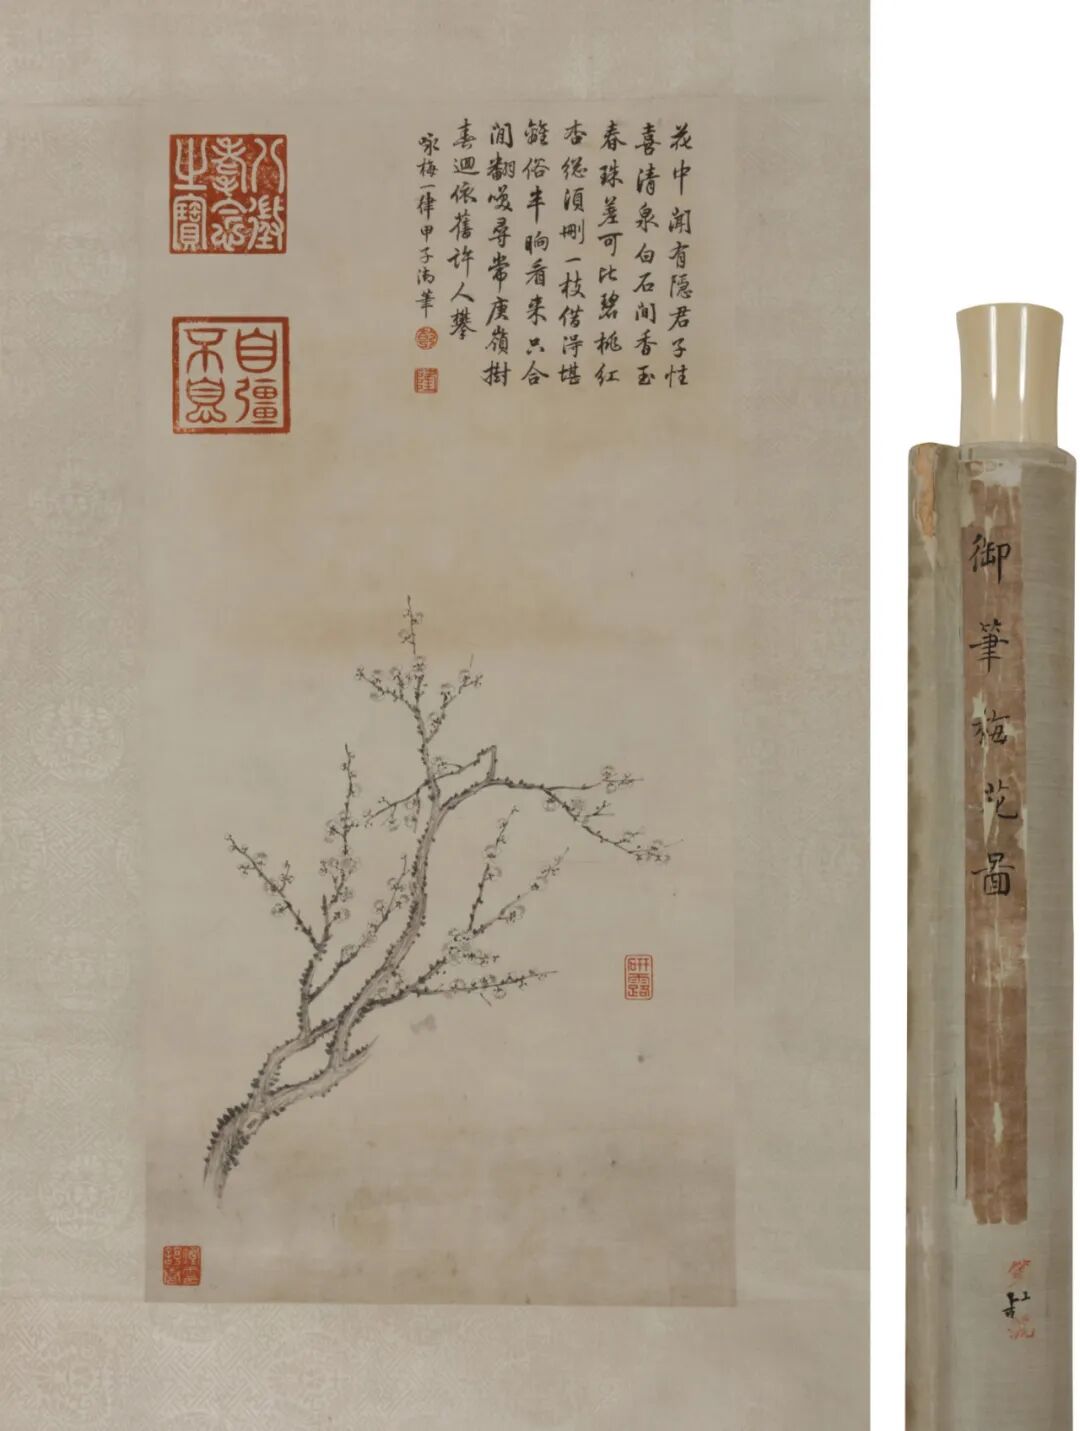 花中聞有隱君子性
喜清泉白石間香玉
春珠差可比碧桃紅
杏總須刪一枝借得堪
離俗半晌看來只合
閒翻嘆尋常庾嶺樹
春迴依舊許人攀
詠梅一律甲子御筆
八徵耄念之寶
自彊不息
研露
御筆梅花圖